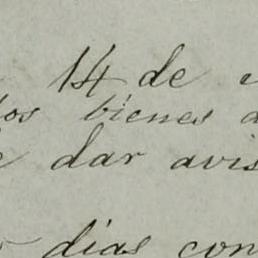 14 de
los bienes
dar avis
dias con